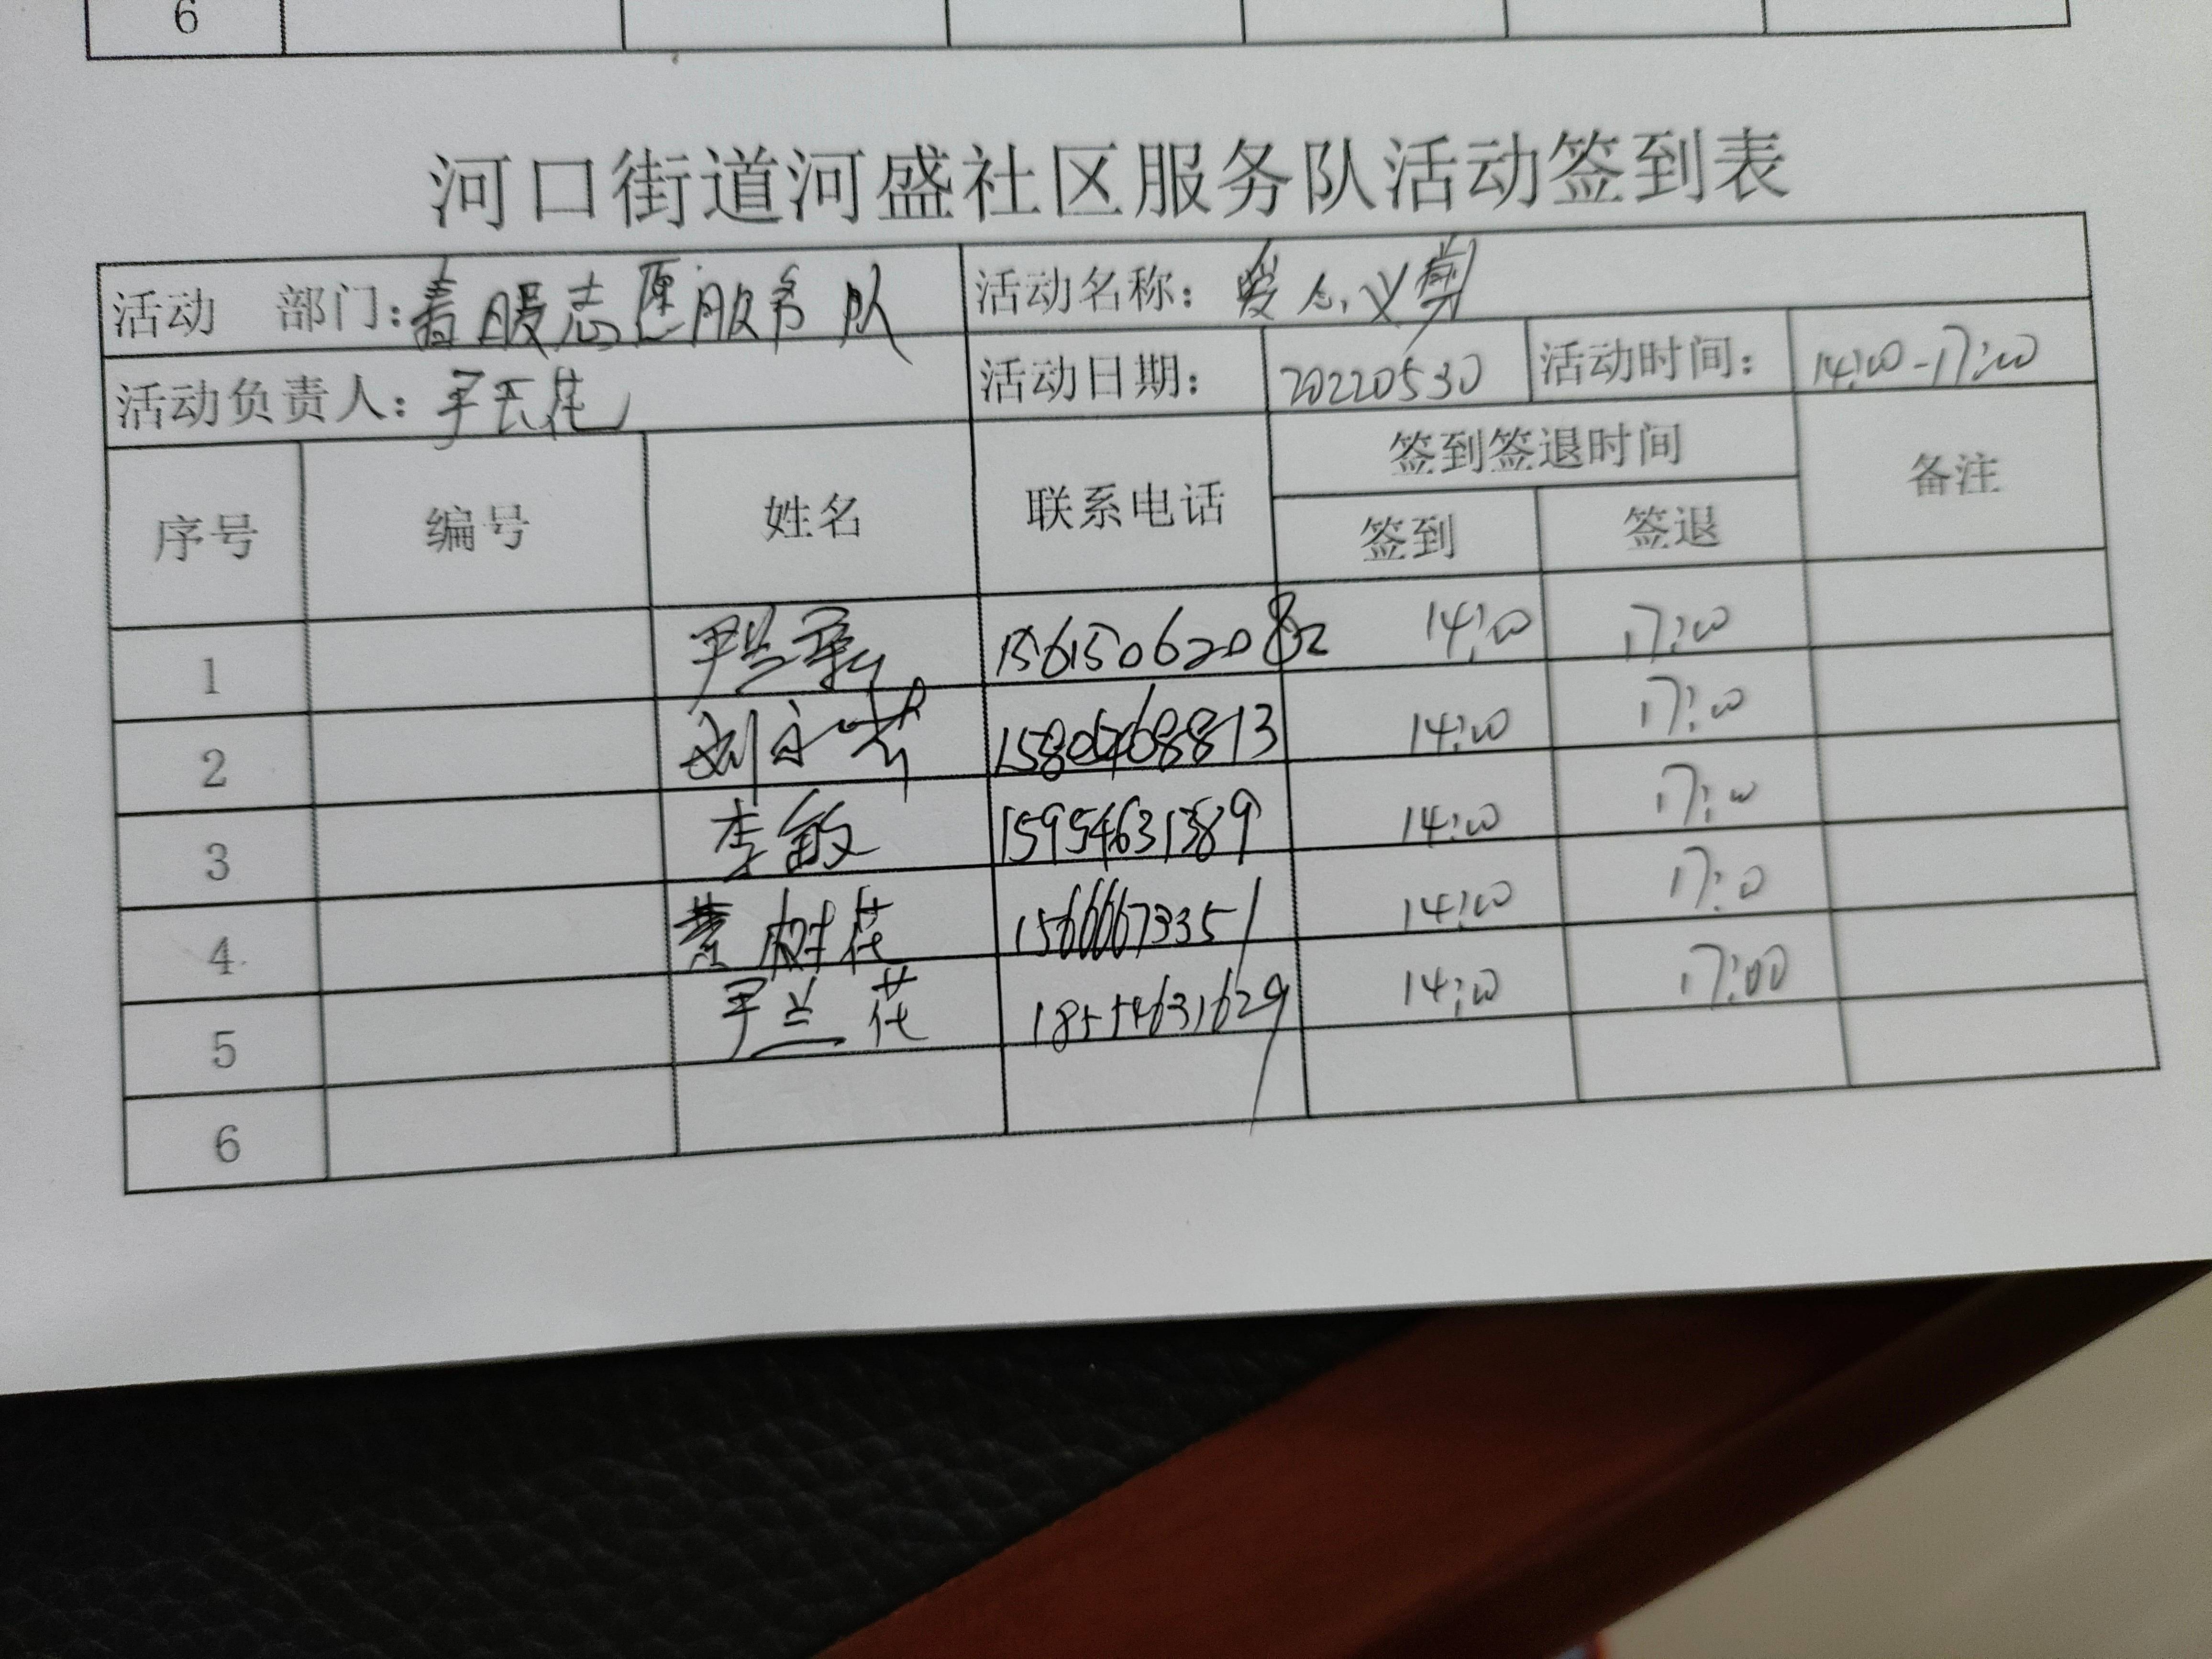 6
河口街道河盛社区服务队活动签到表
活动 部门：春暖志愿服务队 活动名称：爱心义剪
活动负责人：尹兰花 活动日期： 20220530 活动时间： 14:00-17:00
序号 编号 姓名 联系电话 签到签退时间 备注
签到 签退
1 15615062082 14:00 17:00
2 刘 14:00 17:00
3 李敏 15954631389 14:00 17:00
4 黄树花 15666673351 14:00 17:00
5 尹兰花 18554631629 14:00 17:00
6